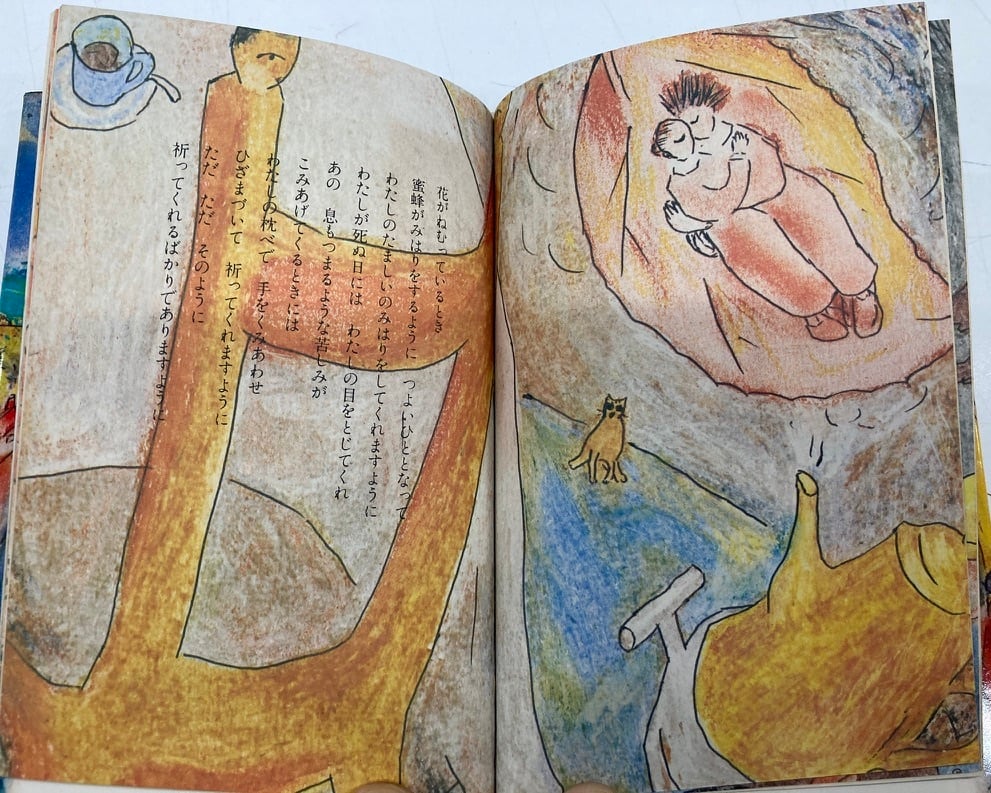 花がねむっているとき
蜜蜂がみはりをするように　つよいひととなって
わたしのたましいのみはりをしてくれますように
わたしが死ぬ日には　わたしの目をとじてくれ
あの　息もつまるような苦しみが
こみあげてくるときには
わたしの枕べで　手をくみあわせ
ひざまづいて　祈ってくれますように
ただ　ただ　そのように
祈ってくれるばかりでありますように